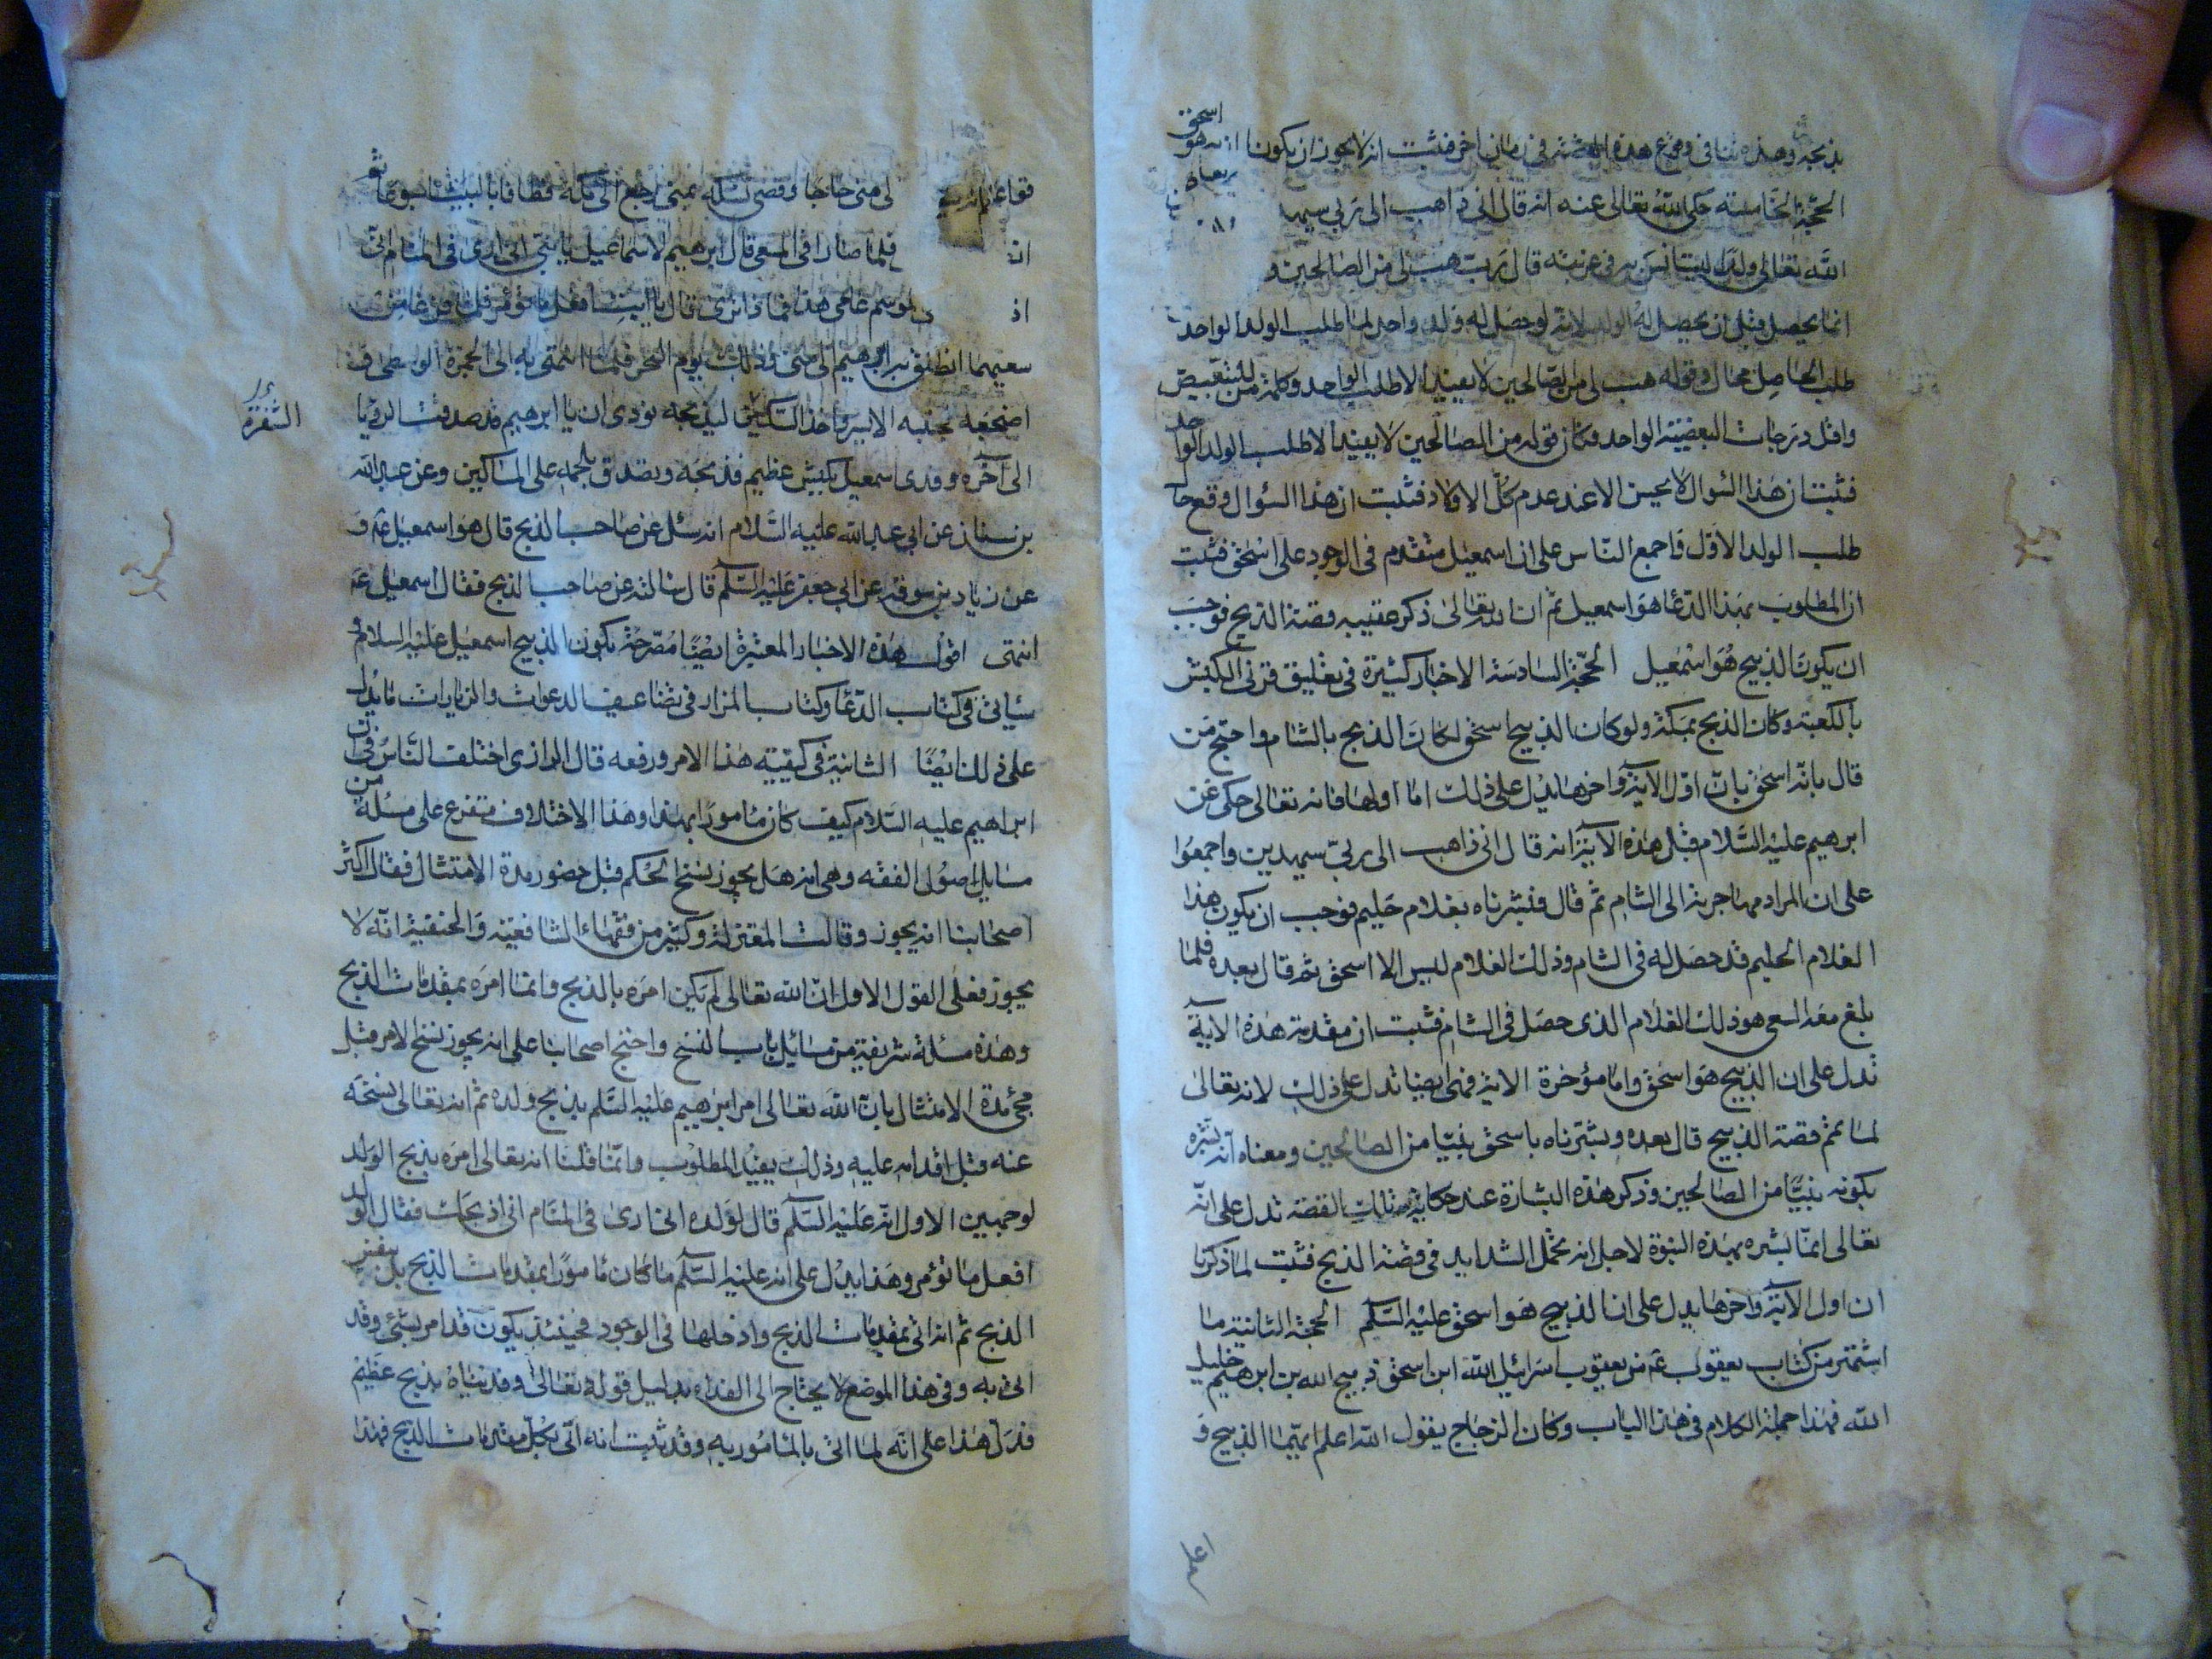 بذبحه وهذه ينافى وقوع هذه القصة فى زمان اخر فثبت انه لا يجوز ان يكون هو اسحق
الحجة الخامسة حكى الله تعالى عنه انه قال انى ذاهب الى ربى سيهد
الله تعالى ولدا ليستانس به فى غربته قال رب هب لى من الصالحين و
انما يحصل قبل ان يحصل له الولد لانه لو حصل له ولد واحد لما طلب الولد الواحد
طلب الحاصل محال وقوله هب لى من الصالحين لا يفيد الا طلب الواحد وكلمة من للتبعيض
واقل درجات البعضية الواحد فكان قوله من الصالحين لا يفيد الا طلب الولد الواحد
فثبت ان هذا السوال لا يحسن الا عند عدم كل الاولاد فثبت ان هذا السؤال وقع حا
طلب الولد الاول فاجمع الناس على ان اسمعيل متقدم فى الوجود على اسحق فثبت
ان المطلوب بهذا الدعا هو اسمعيل ثم ان الله تعالى ذكر عقيبه قصة الذبح فوجب
ان يكون الذبيح هو اسمعيل الحجة السادسة الاخبار كثيرة فى تعليق قرنى الكبش
بالكعبة وكان الذبح بمكة ولو كان الذبيح اسحق لكان الذبح بالشام واحتج من
قال بانه اسحق بان اول الاية واخرها يدل على ذلك اما اولها فانه تعالى حكى عن
ابرهيم عليه السلام قبل هذه الاية انه قال انى ذاهب الى ربى سيهدين واجمعوا
على ان المراد مهاجرته الى الشام ثم قال فبشرناه بغلام حليم فوجب ان يكون هذا
الغلام الحليم قد حصل له فى الشام وذلك الغلام ليس الا اسحق ثم قال بعده فلما
بلغ معه السعى هو ذلك الغلام الذى حصل فى الشام فثبت ان مقدمة هذه الاية
تدل على ان الذبيح هو اسحق واما مؤخرة الاية فهى ايضا تدل على ذلك لانه تعالى
لما تم قصة الذبيح قال بعده وبشرناه باسحق نبيا من الصالحين ومعناه انه بشره
بكونه نبيا من الصالحين وذكر هذه البشارة عند حكاية تلك القصة تدل على انه
تعالى انما بشره بهذه النبوة لاجل انه تحمل الشدايد فى قصة الذبح فثبت لما ذكرنا
ان اول الاية واخرها يدل على ان الذبيح هو اسحق عليه السلم الحجة الثانية ما
اشتهر من كتاب يعقوب عم من يعقوب اسرائيل الله ابن اسحق ذبيح الله بن ابرهيم خليل
الله فهذا جملة الكلام فى هذا الباب وكان الزجاج يقول الله اعلم ايهما الذبيح و
لى منى حاجا وقضى نسكه بمنى رجع الى مكة فطافا بالبيت اسبوعا ثم
ان فلما صارا فى المسعى قال ابرهيم لاسماعيل يا بنى انى ارى فى المنام انى
اذ الموسم عامى هذا فماذا ترى قال يا ابت افعل ما تؤمر فلما فرغا من
سعيهما انطلق به ابرهيم الى منى وذلك يوم النحر فلما انتهى به الى الجمرة الوسطى و
اضجعه لجنبه الايسر واخذ السكين ليذبحه نودى ان يا ابرهيم قد صدقت الرؤيا
الشفرة
الى آخره وفدى اسمعيل بكبش عظيم فذبحه وتصدق بلحمه على المساكين وعن عبد الله
بن سنان عن ابى عبد الله عليه السلام انه سئل عن صاحب الذبح قال هو اسمعيل عم و
عن زياد بن سوقة عن ابى جعفر عليه السلم قال سالته عن صاحب الذبح فقال اسمعيل عم
انتهى اقول هذه الاخبار المعتبرة ايضا مصرحة بكون الذبيح اسمعيل عليه السلام
سياتى فى كتاب الدعا وكتاب المزار فى تضاعيف الدعوات والزيارات ما يدل
على ذلك ايضا الثانية فى كيفية هذا الامر ورفعه قال الرازى اختلف الناس فى ان
ابراهيم عليه السلام كيف كان مامورا بهذا وهذا الاختلاف متفرع على مسئلة من
مسايل اصول الفقه وهى انه هل يجوز نسخ الحكم قبل حضور مدة الامتثال فقال اكثر
اصحابنا انه يجوز وقالت المعتزلة وكثير من فقهاء الشافعية والحنفية انه لا
يجوز فعلى القول الاول ان الله تعالى لم يكن امره بالذبح وانما امره بمقدمات الذبح
وهذه مسئلة شريفة من مسائل باب النسخ واحتج اصحابنا على انه يجوز نسخ الامر قبل
مجئ مدة الامتثال بان الله تعالى امر ابرهيم عليه السلم بذبح ولده ثم انه تعالى نسخه
عنه قبل اقدامه عليه وذلك يفيد المطلوب وانما قلنا انه تعالى امره بذبح الولد
لوجهين الاول انه عليه السلم قال لولده انى ارى فى المنام انى اذبحك فقال الولد
افعل ما تؤمر وهذا يدل على انه عليه السلم ما كان مامورا بمقدمات الذبح بل بنفس
الذبح ثم انه اتى بمقدمات الذبح وادخلها فى الوجود فحينئذ يكون قد امر بشئ وقد
اتى به وفى هذا الموضع لا يحتاج الى الفداء بدليل قوله تعالى وفديناه بذبح عظيم
فدل هذا على انه لما اتى بالمامور به وقد ثبت انه اتى بكل مقدمات الذبح فهذا